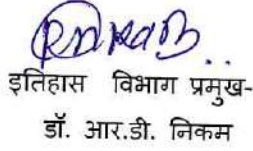 इतिहास विभाग प्रमुख-
डॉ. आर.डी. निकम